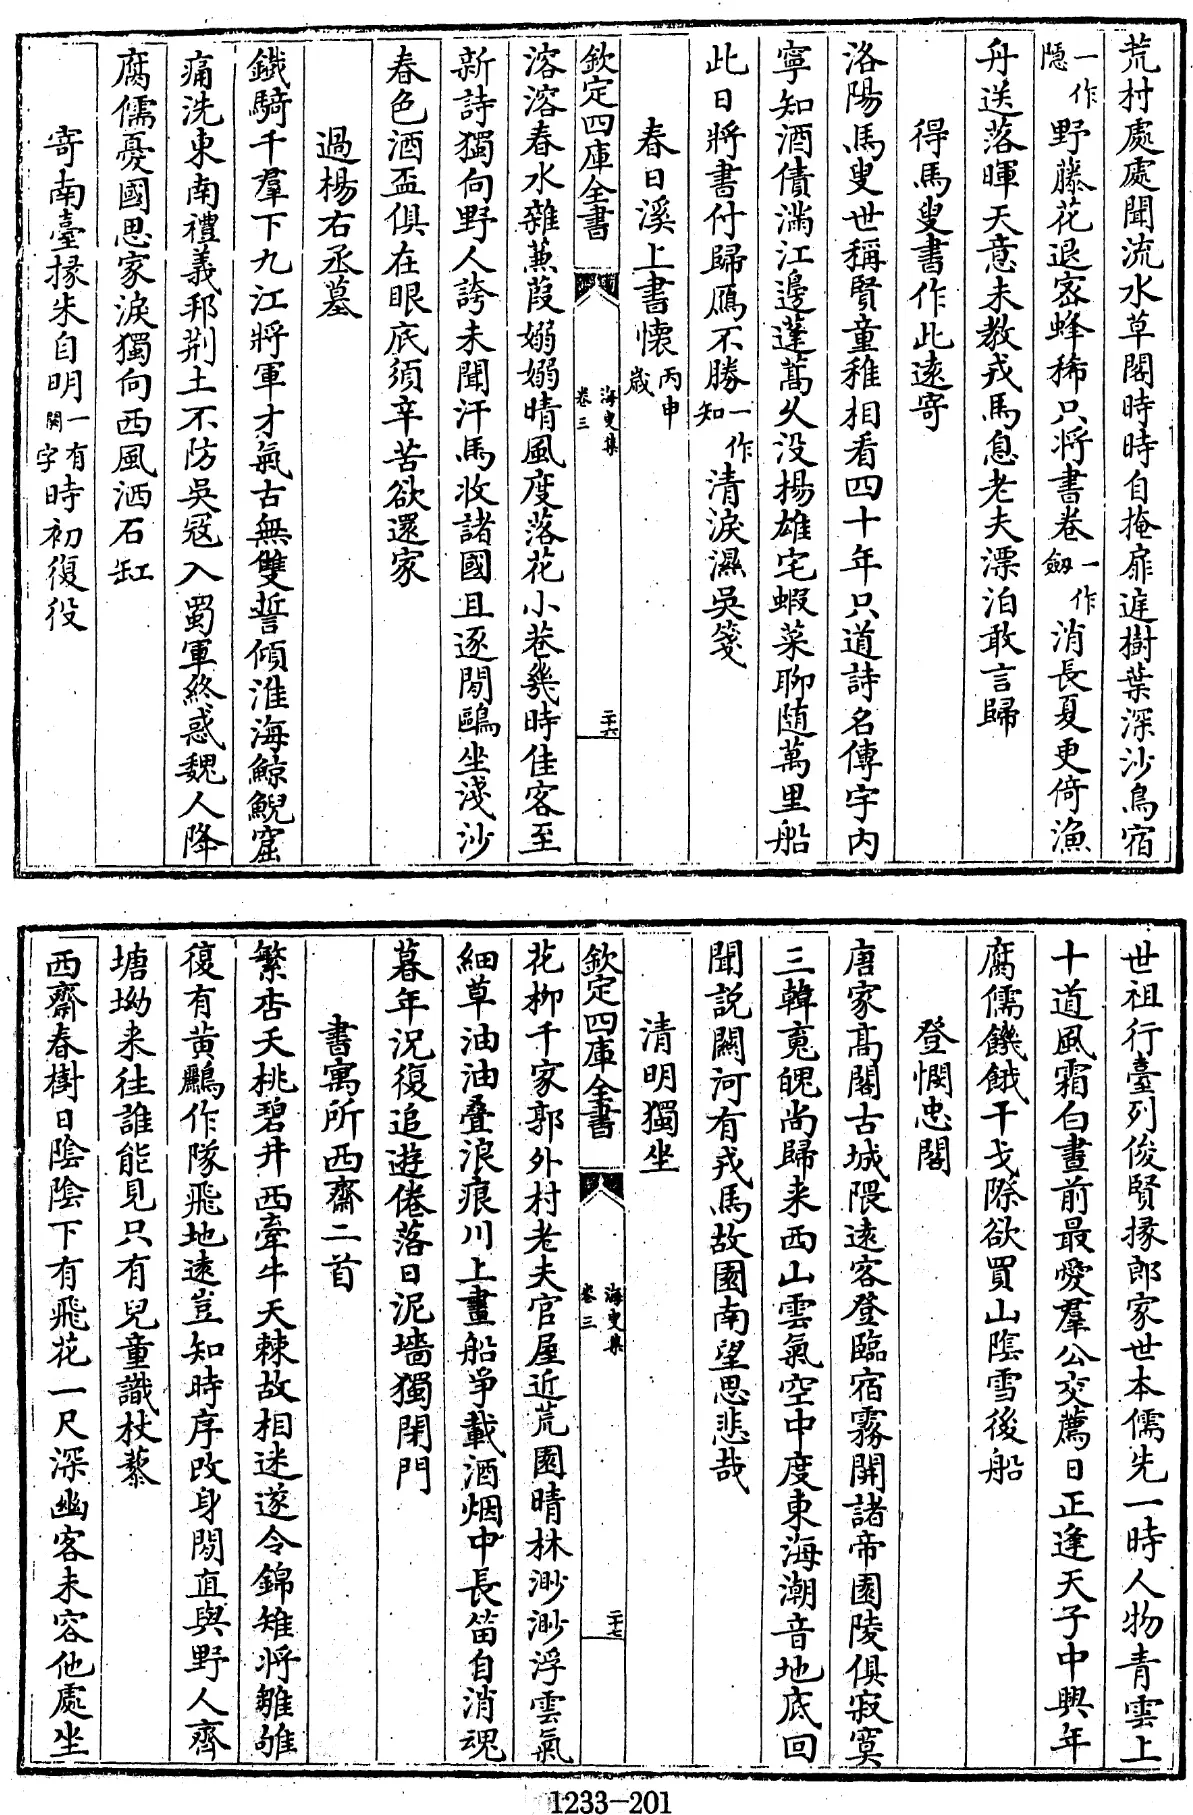 荒村處處聞流水草閣時時自掩扉庭樹葉深沙鳥宿
一作隱野藤花退宻蜂稀只將書卷一作劔消長夏更倚漁
舟送落暉天意未教戎馬息老夫漂泊敢言歸
得馬叟書作此遠寄
洛陽馬叟世稱賢童稚相看四十年只道詩名傳宇内
寧知酒債滿江邊蓬蒿久没揚雄宅蝦菜聊随萬里船
此日將書付歸鴈不勝一作知清淚濕吳箋
春日溪上書懷丙申歳
欽定四庫全書
海叟集
卷三
二十六
溶溶春水雜蒹葭嫋嫋晴風度落花小巷幾時佳客至
新詩獨向野人誇未聞汗馬收諸國且逐閒鷗坐淺沙
春色酒盃俱在眼底須辛苦欲還家
過楊右丞墓
鐵騎千羣下九江將軍才氣古無雙誓傾淮海鯨鯢窟
痛洗東南禮義邦荆土不防吳冦入蜀軍終惑魏人降
腐儒憂國思家淚獨向西風洒石缸
寄南臺掾朱自明一有関字時初復役
世祖行臺列俊賢掾郎家世本儒先一時人物青雲上
十道風霜白晝前最愛羣公交薦日正逢天子中興年
腐儒饑餓干戈際欲買山隂雪後船
登憫忠閣
唐家髙閣古城隈遠客登臨宿霧開諸帝園陵俱寂寞
三韓䰟魄尚歸来西山雲氣空中度東海潮音地底回
聞説關河有戎馬故園南望思悲哉
清明獨坐
欽定四庫全書
海叟集
卷三
二十七
花柳千家郭外村老夫官屋近荒園晴林渺渺浮雲氣
細草油油叠浪痕川上畫船爭載酒烟中長笛自消魂
暮年况復追遊倦落日泥墻獨閉門
書寓所西齋二首
繁杏夭桃碧井西牽牛天棘故相迷遂令錦雉將雛雊
復有黄鸝作隊飛地遠豈知時序改身閒直與野人齊
塘坳来往誰能見只有兒童識杖藜
西齋春樹日陰陰下有飛花一尺深幽客未容他處坐
1233-201